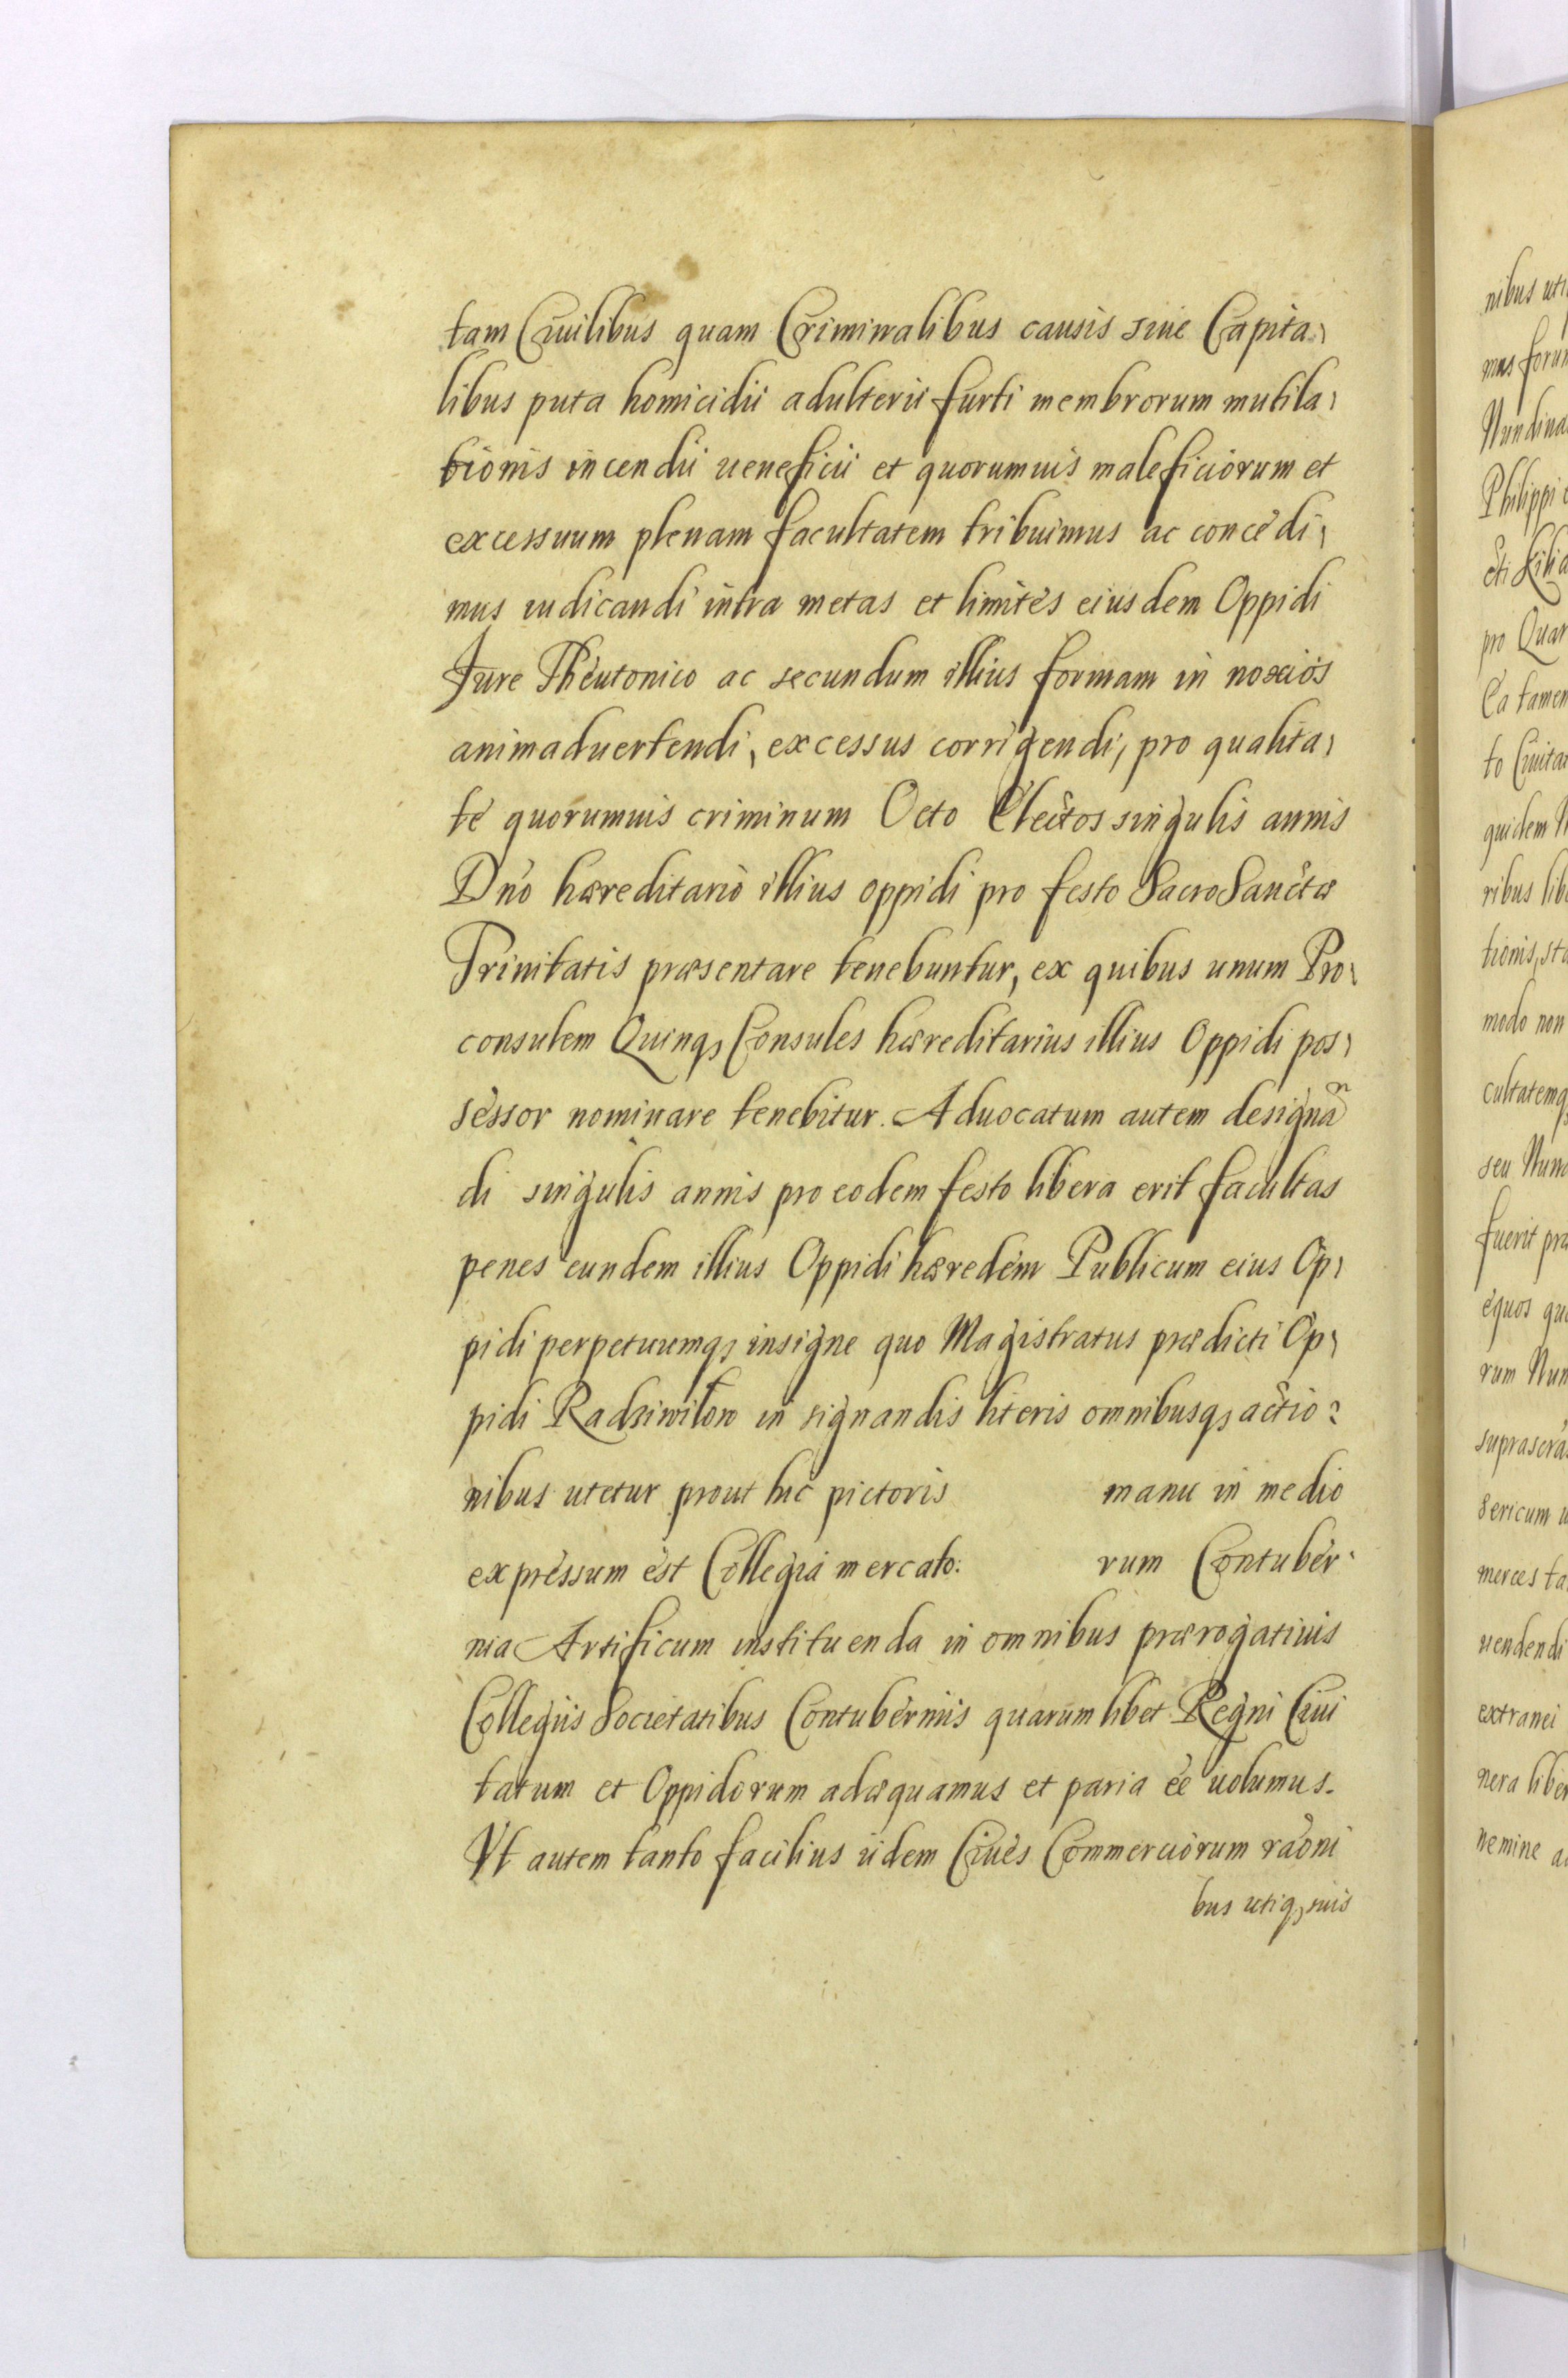 tam Ciuilibus quam Criminalibus causis siue Capita,
libus puta homicidii adulterii furti membrorum mutila,
tionis incendii ueneficii et quorumuis maleficiorum et
excessuum plenam facultatem tribuimus ac concedi,
mus iudicandi intra metas et limites eiusdem Oppidi
Jure Theutonico ac secundum illius formam in noxios
animaduertendi, excessus corrigendi, pro qualita,
te quorumuis criminum Octo Electos singulis annis
Dno hæreditario illius oppidi pro festo SacroSanctæ
Trinitatis præsentare tenebuntur, ex quibus unum Pro,
consulem Quinqȝ Consules hæreditarius illius Oppidi pos,
sessor nominare tenebitur. Aduocatum autem designãⁿ
di singulis annis pro eodem festo libera erit facultas
penes eundem illius Oppidi hæredem Publicum eius Op,
pidi perpetuumqȝ insigne quo Magistratus prædicti Op,
pidi Radziwilow in signandis literis omnibusqȝ actio:
nibus utetur prout hic pictoris manu in medio
expressum est Collegia mercato: rum Contuber-
nia Artificum instituenda in omnibus prærogatiuis
Collegiis Societatibus Contuberniis quarumlibet Regni Ciui
tatum et Oppidorum adæquamus et paria ee uolumus.
Vt autem tanto facilius iidem Ciues Commerciorum raoni
bus utiqȝ suis
nibus uti
mus forum
Nundina
Philippi
sti Kilia
pro Quar
Ea tamen
to Ciuitat
quidem N
ribus lib
tionis, sta
modo non
cultatemqȝ
seu Nund
fuerit præ
equos qu
rum Nun
suprascra
Sericum u
merces ta
uendendi
extranei
nera liber
nemine a